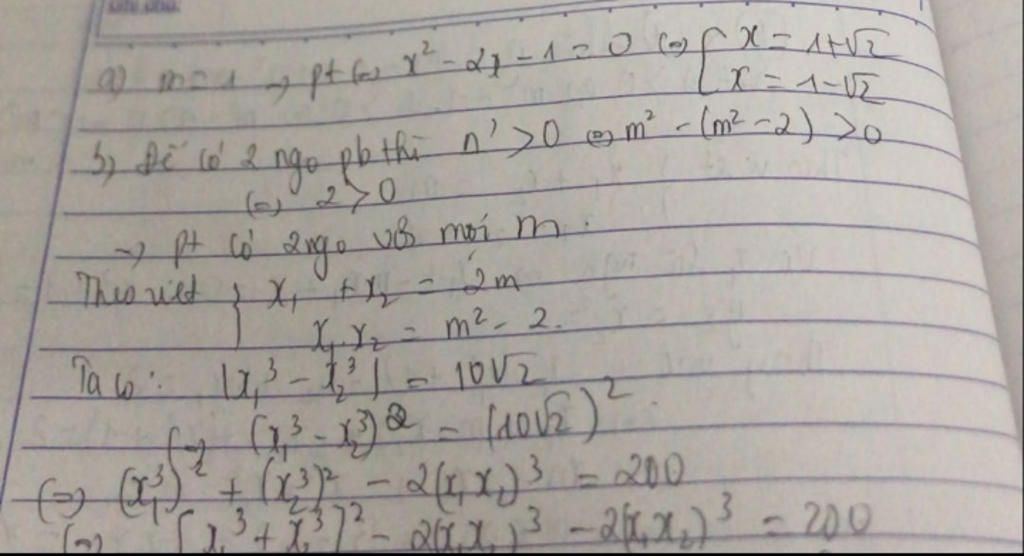 a) m = 1 → pt (=) x² - 2x - 1 = 0 (=) [ x = 1+√2
x = 1-√2
b, Để có 2 ngo pb thì Δ' > 0 (=) m² - (m² - 2) > 0
(=) 2 > 0
→ pt có 2 ngo với mọi m.
Theo viet { x₁ + x₂ = 2m
x₁.x₂ = m² - 2.
Ta có: |x₁³ - x₂³| = 10√2
(=) (x₁³ - x₂³)² = (10√2)²
(=) (x₁³)² + (x₂³)² - 2(x₁x₂)³ = 200
(=) [x₁³ + x₂³]² - 2(x₁x₂)³ - 2(x₁x₂)³ = 200